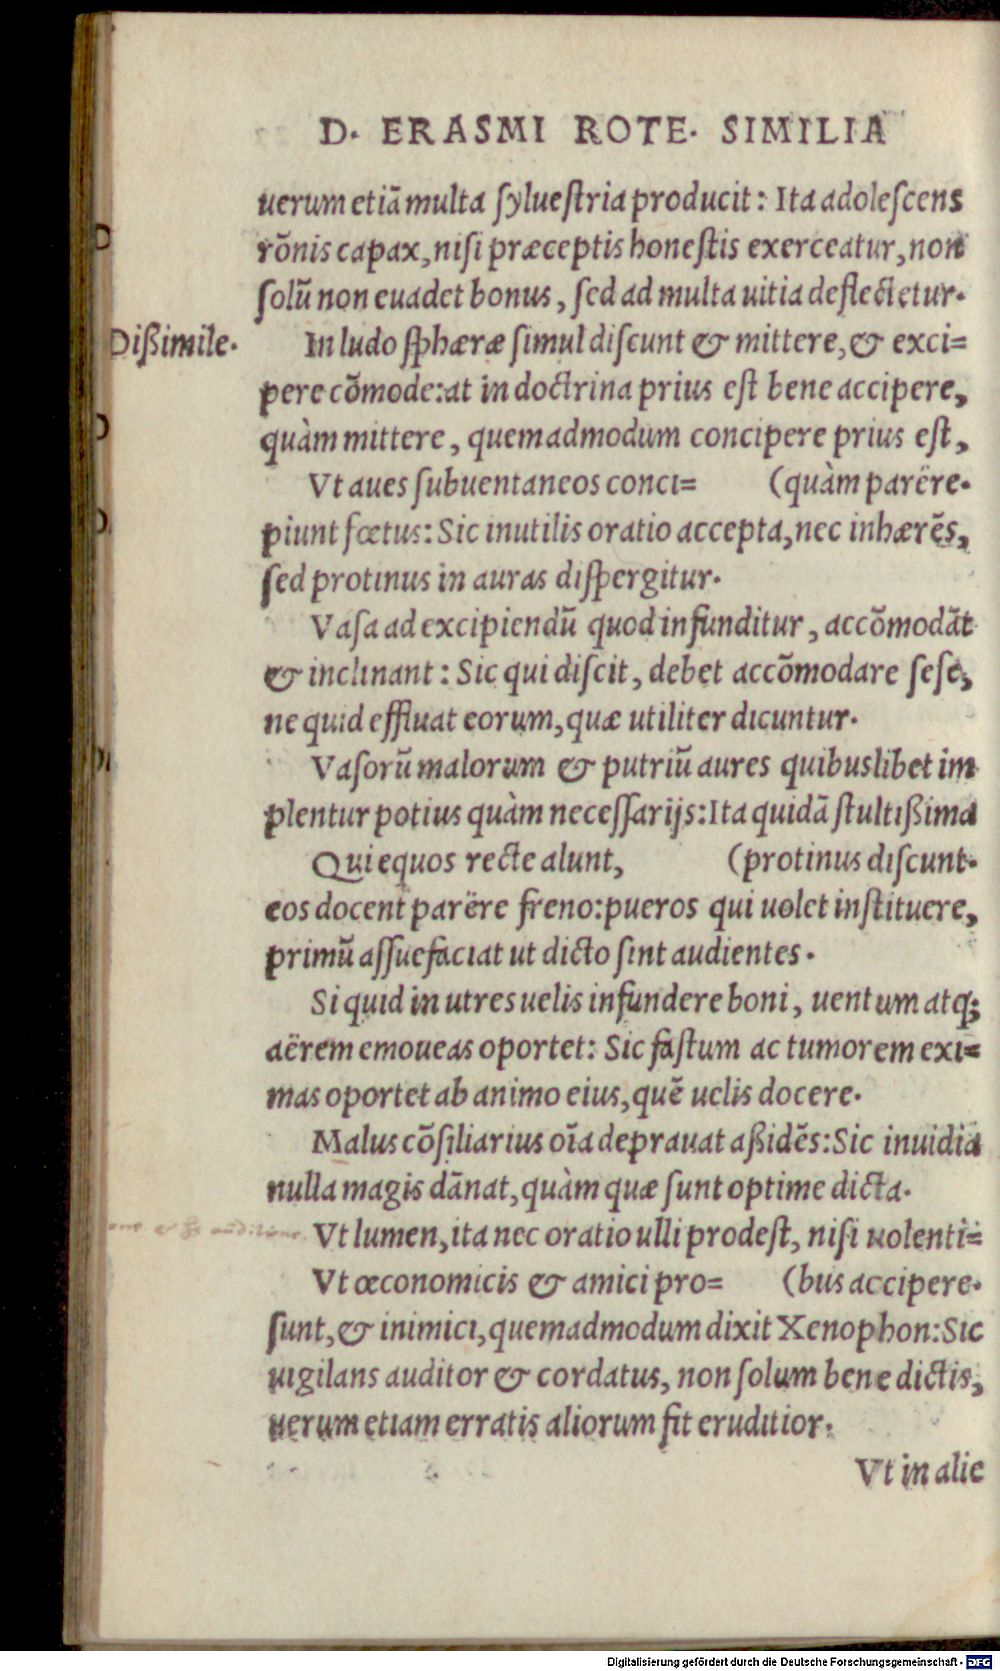 D. ERASMI ROTE. SIMILIA
uerum etiã multa ſylueſtria producit: Ita adoleſcens
rõnis capax, niſi præceptis honeſtis exerceatur, non
ſolũ non euadet bonus, ſed ad multa uitia deflectetur.
Dißimile.
In ludo ſphæræ ſimul diſcunt & mittere, & exci=
pere cõmode: at in doctrina prius eſt bene accipere,
quàm mittere, quemadmodum concipere prius eſt,
Vt aues ſubuentaneos conci= (quàm parëre.
piunt fœtus: Sic inutilis oratio accepta, nec inhærẽs,
ſed protinus in auras diſpergitur.
Vaſa ad excipiendũ quod infunditur, accõmodãt
& inclinant: Sic qui diſcit, debet accõmodare ſeſe,
ne quid effluat eorum, quæ utiliter dicuntur.
Vaſorũ malorum & putriũ aures quibuslibet im
plentur potius quàm neceſſarijs: Ita quidã ſtultißima
Qui equos recte alunt, (protinus diſcunt.
eos docent parëre freno: pueros qui uolet inſtituere,
primũ aſſuefaciat ut dicto ſint audientes.
Si quid in utres uelis infundere boni, uentum atq;
aërem emoueas oportet: Sic faſtum ac tumorem exi=
mas oportet ab animo eius, quẽ uelis docere.
Malus cõſiliarius oĩa deprauat aßidẽs: Sic inuidia
nulla magis dãnat, quàm quæ ſunt optime dicta.
Vt lumen, ita nec oratio ulli prodeſt, niſi uolenti=
Vt œconomicis & amici pro= (bus accipere.
ſunt, & inimici, quemadmodum dixit Xenophon: Sic
uigilans auditor & cordatus, non ſolum bene dictis,
uerum etiam erratis aliorum fit eruditior.
Vt in alie
Digitalisierung gefördert durch die Deutsche Forschungsgemeinschaft - DFG